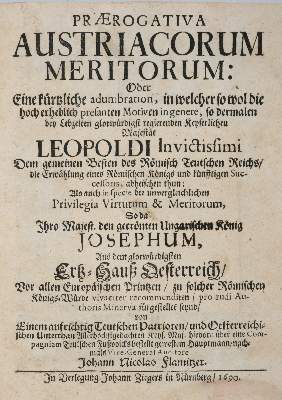 PRÆROGATIVA
AUSTRIACORUM
MERITORUM:
Oder
Eine kürtzliche adumbration, in welcher so wol die
hoch erheblich presanten Motiven in genere, so dermalen
bey Lebzeiten glorwürdigst regierenden Keyserlichen
Majestät
LEOPOLDI Invictissimi
Dem gemeinen Besten des Römisch Teutschen Reichs/
die Erwählung eines Römischen Königs und künfftigen Suc-
cessoris, abheischen thun;
Als auch in specie der unvergleichlichen
Privilegia Virtutum & Meritorum,
So da
Ihro Majest. den gecrönten Ungarischen König
JOSEPHUM,
Aus dem glorwürdigsten
Ertz-Hauß Oesterreich/
Vor allen Europäischen Printzen/ zu solcher Römischen
Königs-Würde vivaciter recommendiren/ pro rudi Au-
thoris Minerva fürgestellet seynd/
von
Einem auffrichtig Teutschen Patrioten/ und Oesterreichi-
schen Unterthan Keys. Maj. hievor über eine Com-
pagniam Teutschen Fußvolcks bestellt gewesten Hauptmann/ nach-
mals Vice-General Auditore
Johann Nicolao Flämitzer.
In Verlegung Johann Ziegers in Nürnberg/ 1690.